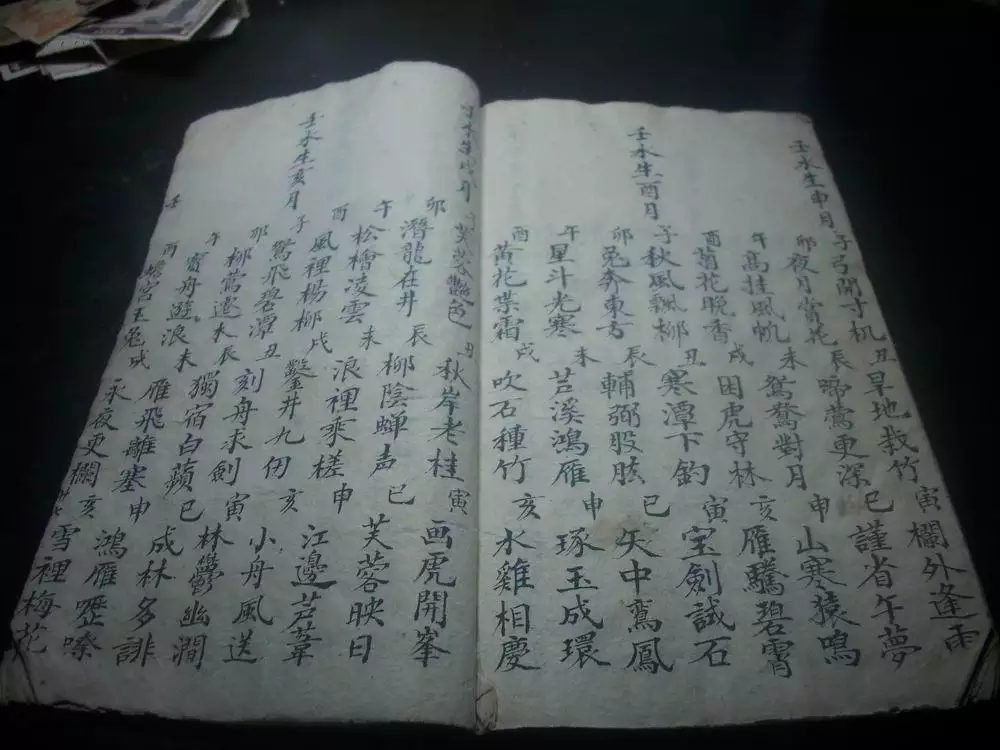 壬水生申月
子弓開寸机 丑旱地栽竹 寅欄外逢雨
卯夜月賞花 辰啼鶯更深 巳謹省午夢
午高挂風帆 未鴛鴦對月 申山寒猿鳴
酉菊花晚香 戌困虎守林 亥雁騰碧霄
壬水生酉月
子秋風飄柳 丑寒潭下釣 寅宝劍試石
卯兔奔東方 辰輔弼股肱 巳矢中鸞鳳
午星斗光寒 未芦溪鴻雁 申琢玉成環
酉黃花葉霜 戌吹石種竹 亥水雞相慶
壬水生戌月
芙蓉艷色 丑秋岸老桂 寅画虎開峯
卯潛龍在井 辰柳陰蝉声 巳芙蓉映日
午松檜凌雲 未浪裡乘槎 申江邊芦葦
酉風裡楊柳 戌鑿井九仞 亥小舟風送
壬水生亥月
子鴛飛碧潭 丑刻舟求劍 寅林欝幽澗
卯柳鶯遷木 辰獨宿白蘋 巳成林多誹
午寶舟遊浪 未雁飛離塞 申鴻雁嚦嗦
酉蟾宮玉兔 戌永夜更欄 亥雪裡梅花
壬